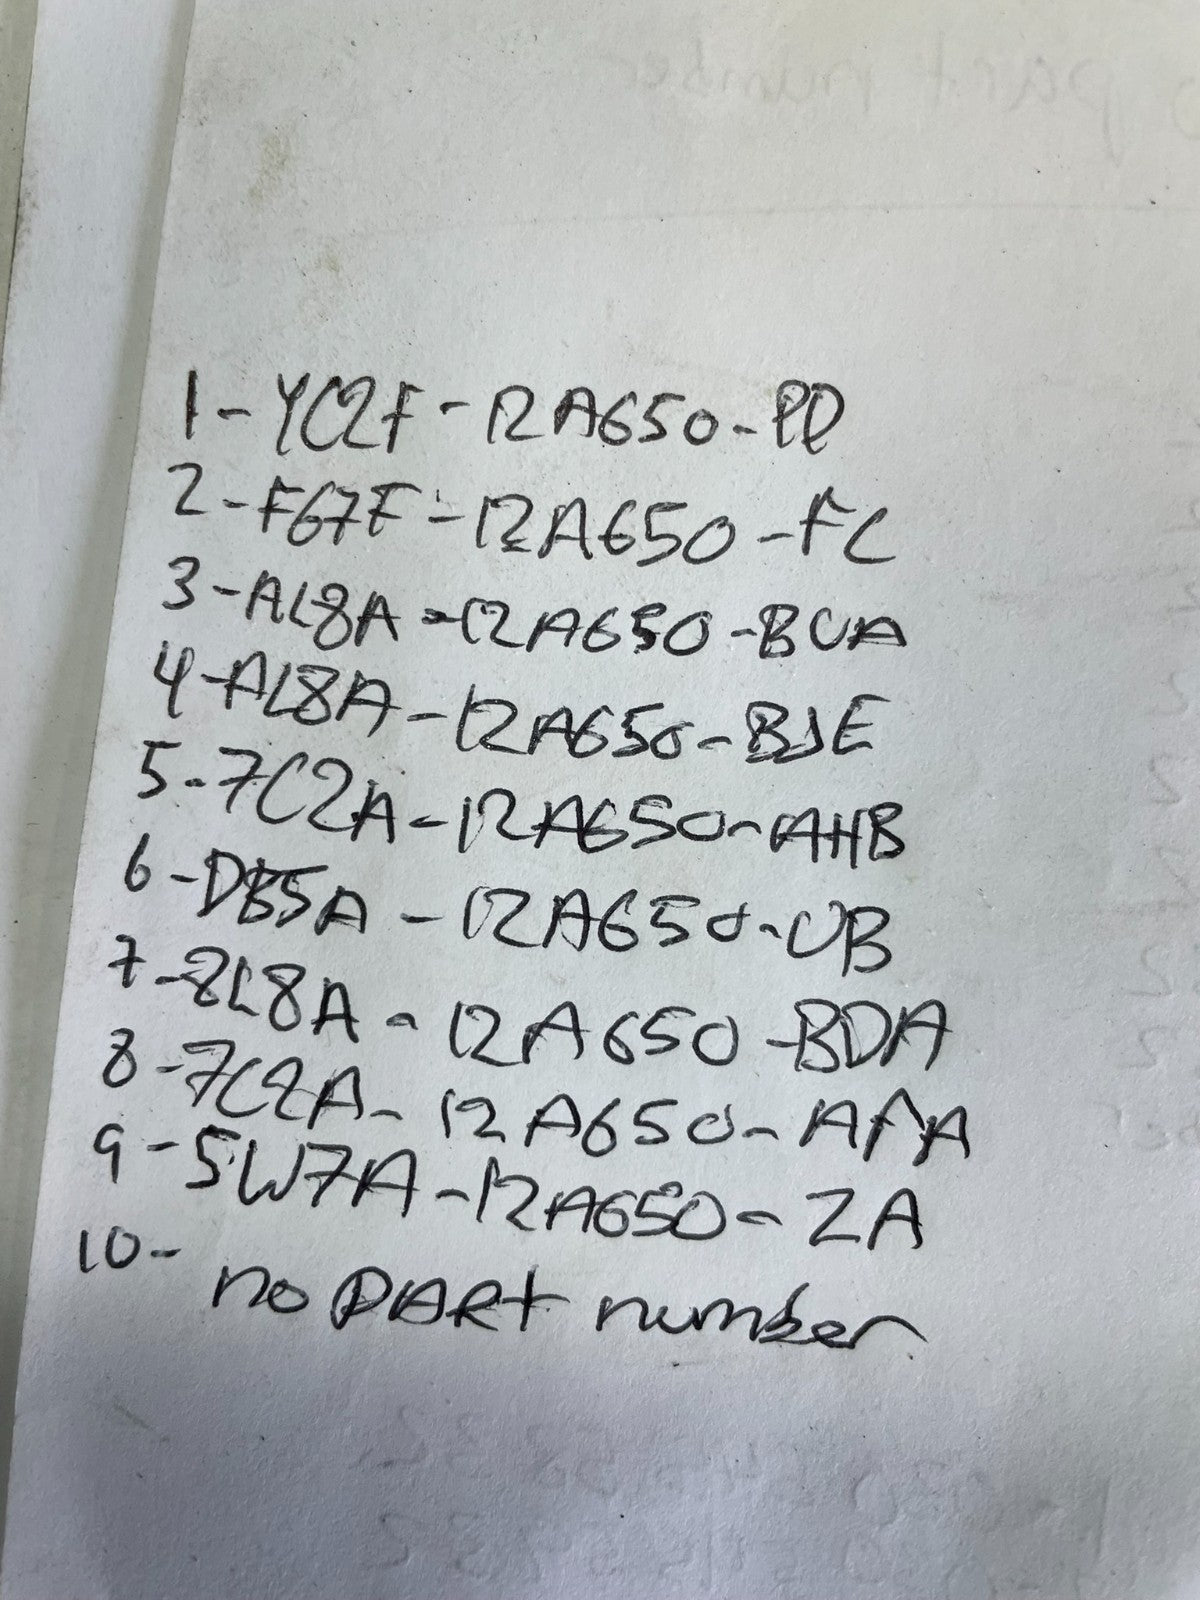 1-YC2F-12A650-PD
2-F67F-12A650-FC
3-AL8A-12A650-BCA
4-AL8A-12A650-BJE
5-7C2A-12A650-AHB
6-DB5A-12A650-UB
7-8L8A-12A650-BDA
8-7C2A-12A650-AFA
9-5W7A-12A650-ZA
10-
no PART number